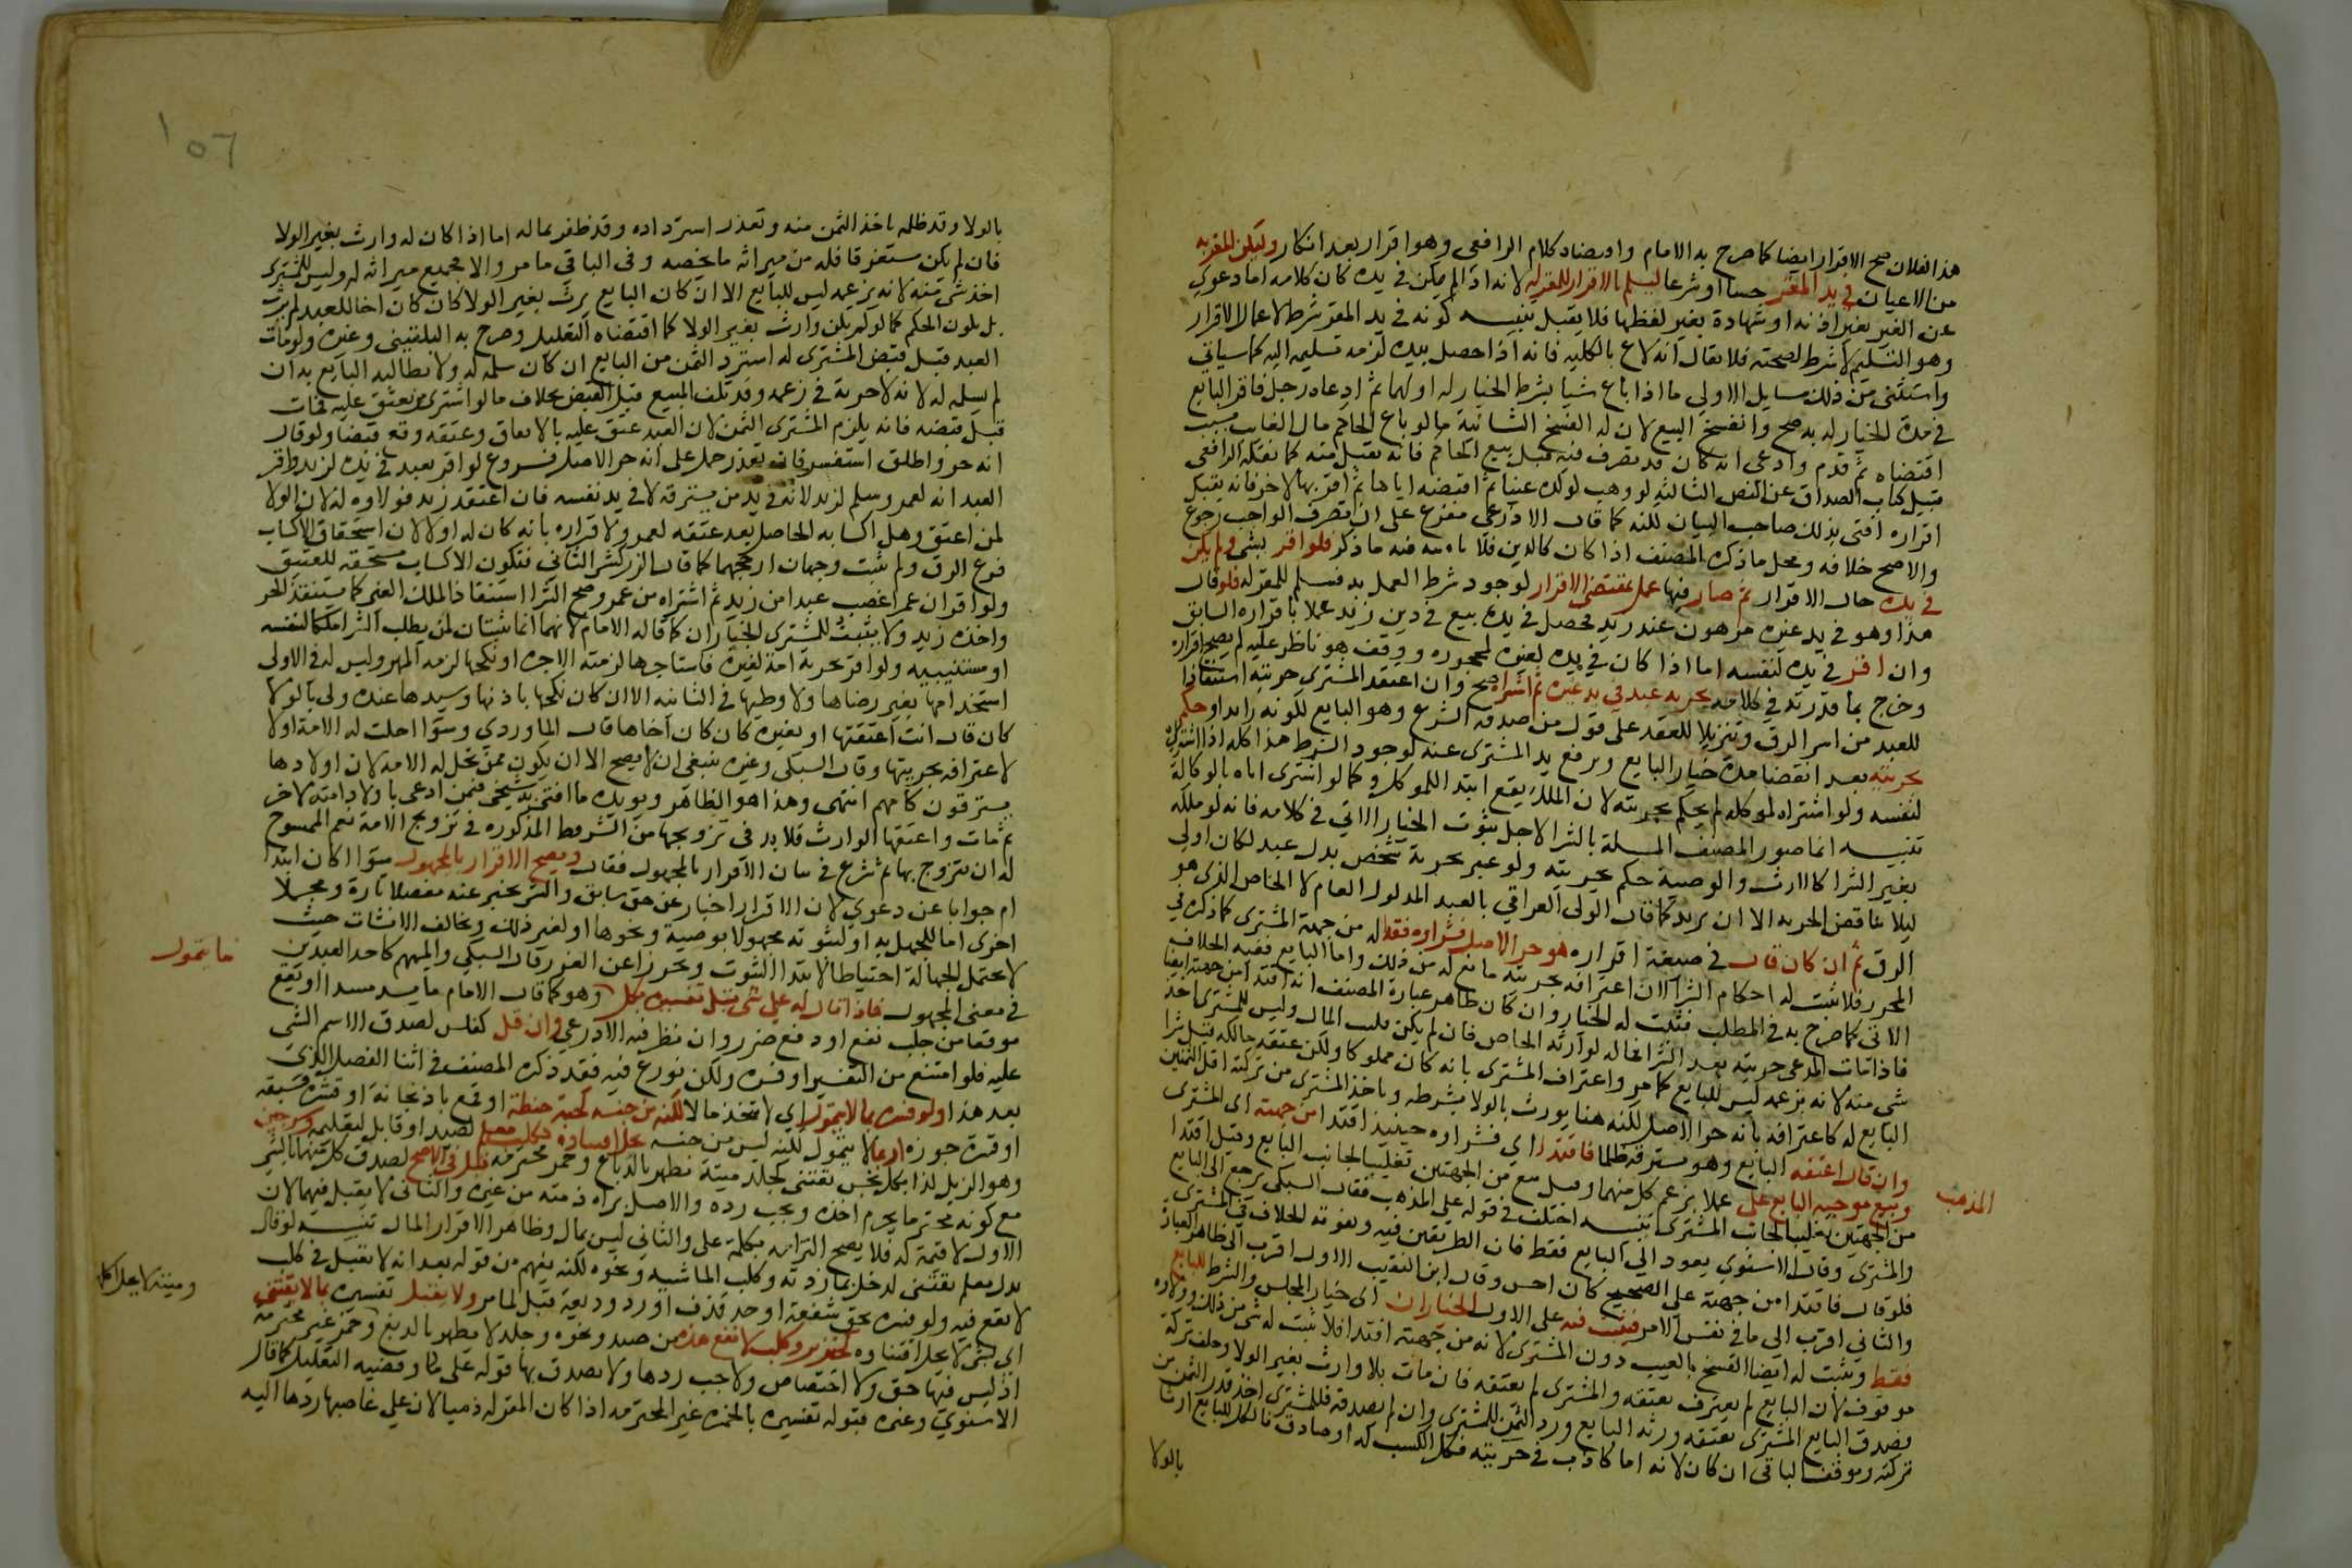 هذا لفلان صح الاقرار ايضا كما صرح به الامام واوضاد كلام الرافعي وهو اقرار بعد انكار وليكن المقر به
من الاعيان في يد المقر حسا او شرعا ليسلم بالاقرار للمقر له لانه اذا لم يكن في يده كان كلامه اما دعوى
عن الغير بغير اذنه او شهادة بغير لفظها فلا يقبل تنبيه كونه في يد المقر شرط لاعمال الاقرار
وهو التسليم لا شرط لصحته فلا يقال انه لاغ بالكلية فانه اذا حصل بيده لزمه تسليمه اليه كما سياتي
واستثنى من ذلك مسايل الاولى ما اذا باع شيا بشرط الخيار له او لهما ثم ادعاه رجل فاقر البايع
في مدة الخيار له به صح وانفسخ البيع لان له الفسخ الثانية ما لو باع الحاكم مال الغايب بسبب
اقتضاه ثم قدم وادعى انه كان قد تصرف فيه قبل بيع الحاكم فانه يقبل منه كما نقله الرافعي
قبيل كتاب الصداق عن النص الثالثة لو وهب لولده عينا ثم اقبضه اياها ثم اقر بها لاخر فانه يقبل
اقراره افتى بذلك صاحب البيان لكنه كما قال الاذرعي مفرع على ان تصرف الواهب رجوع
والاصح خلافه ومحل ما ذكره المصنف اذا كان كالدين فلا ياتي فيه ما ذكر فلو اقر بشي ولم يكن
في يده حال الاقرار ثم صار فيها عمل بمقتضى الاقرار لوجود شرط العمل به فيسلم للمقر له فلو قال
هذا وهو في يد غيره مرهون عند زيد فحصل في يده بيع في دين زيد عملا باقراره السابق
وان اقر في يده لنفسه اما اذا كان في يده لغيره لمحجوره ووقف هو ناظر عليه لم يصح اقراره
وخرج بما قدرته في كلامه بحرية عبد في يد غيره ثم اشتراه صح وان اعتقد المشتري حريته استنقاذا
للعبد من اسر الرق وتنزيلا للعقد على قول من صدقه الشرع وهو البايع لكونه زايدا وحكم
بحريته بعد انقضا مدة خيار البايع ويرفع يد المشتري عنه لوجود الشرط هذا كله اذا اشتراه
لنفسه ولو اشتراه لموكله لم يحكم بحريته لان الملك يقع ابتدا للموكل وكما لو اشترى اباه بالوكالة
تنبيه انما صور المصنف المسئلة بالشرا لاجل ثبوت الخيار الاتي في كلامه فانه لو ملكه
بغير الشرا كالارث والوصية حكم بحريته ولو عبر بحرية شخص بدل عبد لكان اولى
ليلا يناقض الحرية الا ان يريد كما قال الولي العراقي بالعبد المدلول العام لا الخاص الذي هو
الرق ثم ان كان قال في صيغة اقراره هو حر الاصل فشراوه فداله من جهة المشتري كما ذكره في
المحرر فلا تثبت له احكام الشرا لان اعترافه بحريته مانع له من ذلك واما البايع ففيه الخلاف
الاتي كما صرح به في المطلب فيثبت له الخيار وان كان ظاهر عبارة المصنف انه افتدا من جهته ايضا
فاذا مات المدعى حريته بعد الشرا فماله لوارثه الخاص فان لم يكن فلبيت المال وليس للمشتري اخذ
شي منه لانه بزعمه ليس للبايع كما مر واعتراف المشتري بانه كان مملوكا ولكن عتقه مالكه قبل شرا
البايع له كاعترافه بانه حر الاصل لكنه هنا يورث بالولا بشرطه وياخذ المشتري من تركته اقل الثمنين
وان قال اعتقه البايع وهو مسترقه ظلما فافتدا اي فشراوه حينيذ افتدا من جهته اى المشترى
وبيع من جهة البايع على عملا بزعم كل منهما وقيل بيع من الجهتين تغليبا لجانب البايع وقيل افتدا
المذهب
من الجهتين تغليبا لجانب المشترى تنبيه اختلف في قوله على المذهب فقال السبكي يرجع الى البايع
والمشتري وقال الاسنوي يعود الى البايع فقط فان الطريقين فيه ولفوته للخلاف في المشتري
فلو قال فافتدا من جهته على الصحيح كان احسن وقال ابن النقيب الاول اقرب الى ظاهر العبارة
والثاني اقرب الى ما في نفس الامر فيثبت فيه على الاول الخياران اى خيار المجلس والشرط للبايع
فقط ويثبت له ايضا الفسخ بالعيب دون المشترى لانه من جهته افتدا فلا يثبت له شي من ذلك وولاوه
موقوف لان البايع لم يعترف بعتقه والمشترى لم يعتقه فان مات بلا وارث بغير الولا وخلف تركة
فصدق البايع المشترى بعتقه ورثه البايع ورد الثمن للمشترى وان لم يصدقه فللمشترى اخذ قدر الثمن من
تركته ويوقف الباقي ان كان لانه اما كاذب في حريته فكل الكسب له او صادق فالكل للبايع ارثا
بالولا
بالولا وقد ظلمه باخذ الثمن منه وتعذر استرداده وقد ظفر بماله اما اذا كان له وارث بغير الولا
فان لم يكن مستغرقا فله من ميراثه ما يخصه وفى الباقي ما مر والا فجميع ميراثه له وليس للمشترى
اخذ شى منه لانه بزعمه ليس للبايع الا ان كان البايع يرث بغير الولا كان كان اخا للعبد لم يرث
بل يكون الحكم كما لو لم يكن وارث بغير الولا كما اقتضاه التعليل وصرح به البلقيني وغيره ولو مات
العبد قبل قبض المشترى له استرد الثمن من البايع ان كان سلمه له ولا يطالبه البايع به ان
لم يسلمه له لانه لا حرية في زعمه وقد تلف المبيع قبل القبض بخلاف ما لو اشترى من يعتق عليه فمات
قبل قبضه فانه يلزم المشترى الثمن لان العبد عتق عليه بالاتفاق وعتقه وقع قبضا ولو قال
انه حر واطلق استفسر فان تعذر حمل على انه حر الاصل فروع لو اقر بعبد في يده لزيد واقر
العبد انه لعمرو سلم لزيد لانه في يد من يسترقه لا في يد نفسه فان اعتقه زيد فولاوه له لان الولا
لمن اعتق وهل اكسابه الحاصل بعد عتقه لعمرو لاقراره بانه كان له او لا لان استحقاق الاكساب
فرع الرق ولم يثبت وجهان ارجحهما كما قال الزركشي الثاني فتكون الاكساب مستحقة للعتيق
ولو اقر ان عمرا غصب عبدا من زيد ثم اشتراه من عمرو صح الشرا استنقاذا لملك الغير كما يستنقذ الحر
واخذه زيد ولا يثبت للمشترى الخياران كما قاله الامام لانهما انما يثبتان لمن يطلب الشرا ملكا لنفسه
او مستنيبيه ولو اقر بحرية امة لغيره فاستاجرها لزمته الاجرة او نكحها لزمه المهر وليس له في الاولى
استخدامها بغير رضاها ولا وطيها في الثانية الا ان كان نكحها باذنها وسيدها عنده ولى بالولا
كان قال انت اعتقتها او بغيره كان كان اخاها قال الماوردي وسوا احلت له الامة او لا
لاعترافه بحريتها وقال السبكي وغيره ينبغى ان لا يصح الا ان يكون ممن تحل له الامة لان اولادها
يسترقون كامهم انتهى وهذا هو الظاهر ويويده ما افتى به شيخي فيمن ادعى باولاد امته لاخر
ثم مات واعتقها الوارث فلا بد في تزويجها من الشروط المذكورة في تزويج الامة نعم الممسوح
له ان يتزوج بها ثم شرع في بيان الاقرار بالمجهول فقال ويصح الاقرار بالمجهول سوا اكان ابتدا
ام جوابا عن دعوى لان الاقرار اخبار عن حق سابق والشي يخبر عنه مفصلا تارة ومجملا
اخرى اما للجهل به او لثبوته مجهولا بوصية ونحوها او لغير ذلك ويخالف الانشات حيث
ما يتمول
لا تحتمل الجهالة احتياطا لابتدا الثبوت وتحرزا عن الغرر قال السبكي والمبهم كاحد العبدين
في معنى المجهول فاذا قال له علي شي قبل تفسيره بكل وهو كما قال الامام ما يسد مسدا او يقع
موقعا من جلب نفع او دفع ضرر وان نظر فيه الاذرعي وان قل كفلس لصدق الاسم الشي
عليه فلو امتنع من التفسير او فسره ولكن نوزع فيه فقد ذكره المصنف في اثنا الفصل الذي
بعد هذا ولو فسره بما لا يتمول اي لا يتخذ مالا لكنه من جنسه كحبة حنطة او قمع باذنجانة او قشرة فستقة
او قشرة جوزة او بما لا يتمول لكنه ليس من جنسه يحل اقتناوه ككلب معلم لصيد او قابل لتعليمه وسرجين
وهو الزبل لذا بكل نجس يقتنى كجلد ميتة تطهر بالدباغ وخمر محترمه قبل في الاصح لصدق كل منهما بالشي
مع كونه محترما يحرم اخذه ويجب رده والاصل براة ذمته من غيره والثانى لا يقبل فيهما لان
الاول لا قيمة له فلا يصح التزامه بكلمة على والثاني ليس بمال وظاهر الاقرار المال تنبيه لو قال
بدل معلم يقتنى لدخل ما زدته وكلب الماشية ونحوه لكنه يفهم من قوله بعد انه لا يقبل في كلب
وميتة لا يحل اكلها
لا نفع فيه ولو فسره بحق شفعة او حد قذف او رد وديعة قبل لما مر ولا يقبل تفسيره بما لا يقتنى
اى بشي لا يحل اقتناوه كخنزير وكلب لا نفع فيه من صيد ونحوه وجلد لا يطهر بالدبغ وخمر غير محترمة
اذ ليس فيها حق ولا اختصاص ولا يجب ردها ولا يصدق بها قوله على وقضية التعليل كما قال
الاسنوي وغيره قبوله تفسيره بالخمرة غير المحترمه اذا كان المقر له ذميا لان علي غاصبها ردها اليه